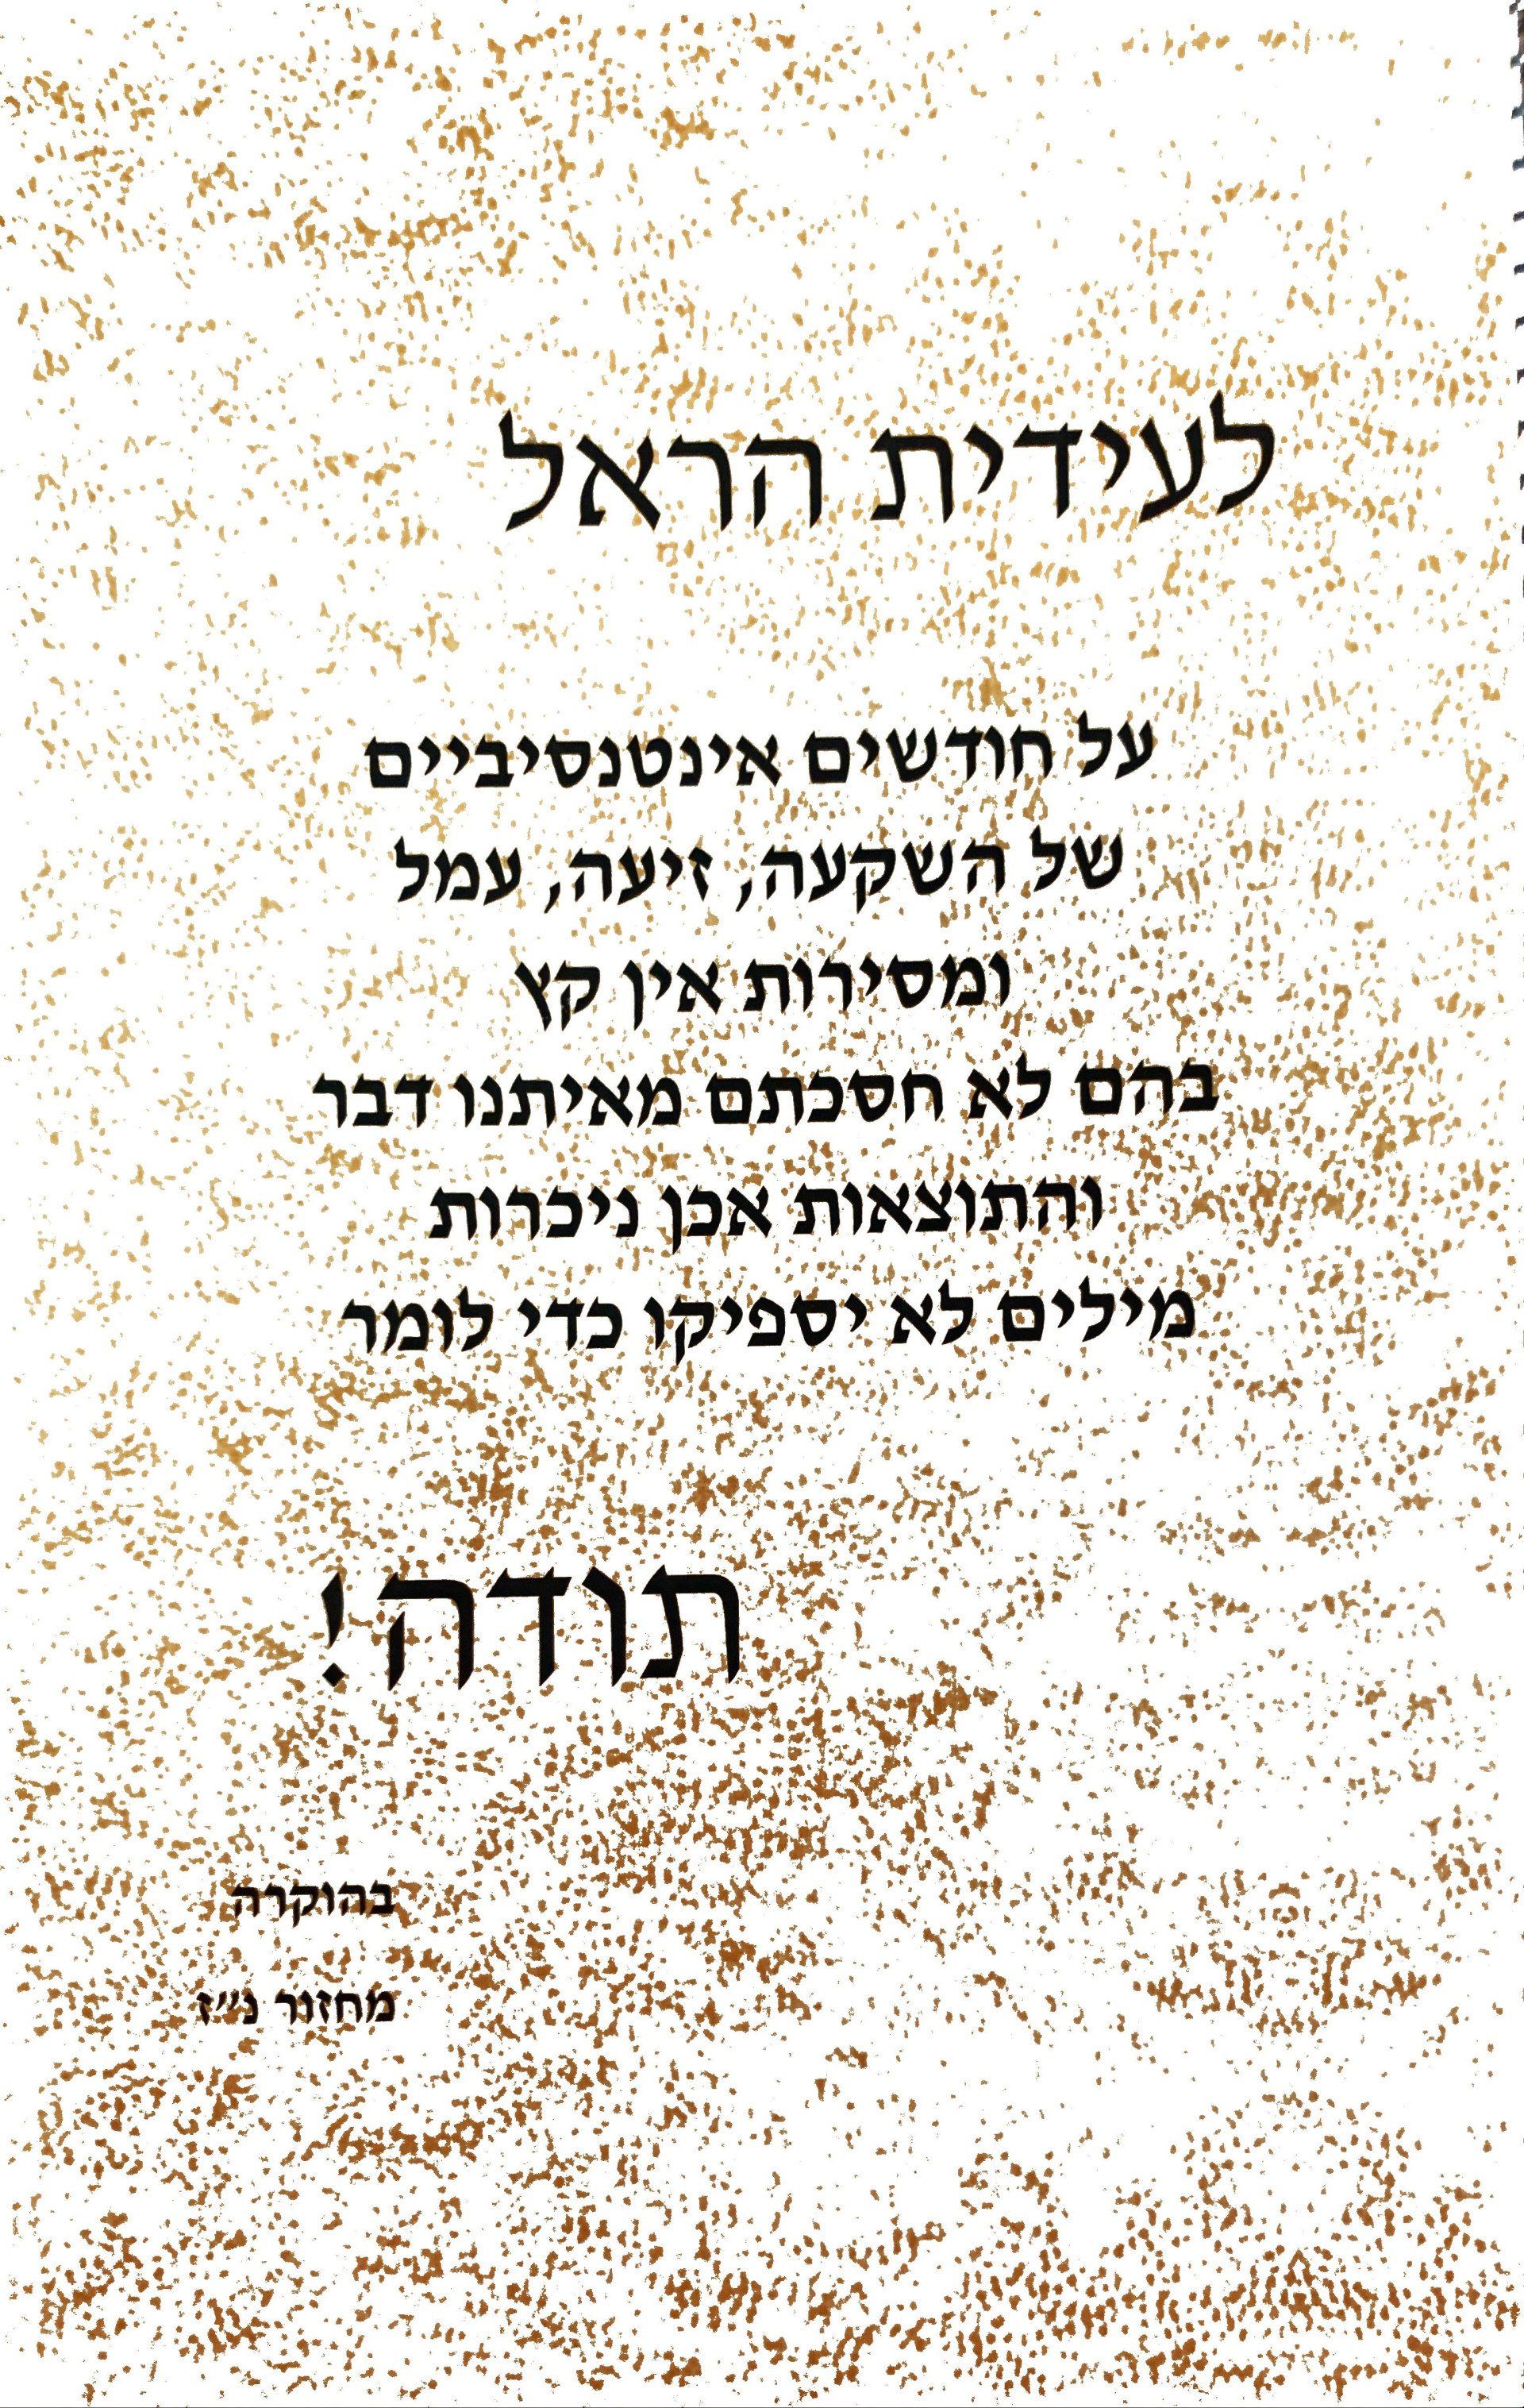 לעידית הראל
על חודשים אינטנסיביים
של השקעה, זיעה, עמל
ומסירות אין קץ
בהם לא חסכתם מאיתנו דבר
והתוצאות אכן ניכרות
מילים לא יספיקו כדי לומר
תודה!
בהוקרה
מחזור נ״ז